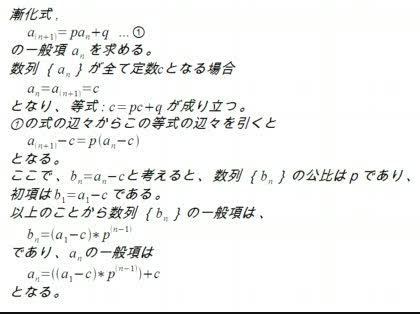 漸化式，
a(n+1)=pan+q …①
の一般項 an を求める。
数列 { an } が全て定数cとなる場合
an=a(n+1)=c
となり、等式：c=pc+q が成り立つ。
①の式の辺々からこの等式の辺々を引くと
a(n+1)−c=p(an−c)
となる。
ここで、bn=an−cと考えると、数列 { bn } の公比はpであり、
初項はb1=a1−cである。
以上のことから数列 { bn } の一般項は、
bn=(a1−c)∗p(n−1)
であり、anの一般項は
an=((a1−c)∗p(n−1))+c
となる。